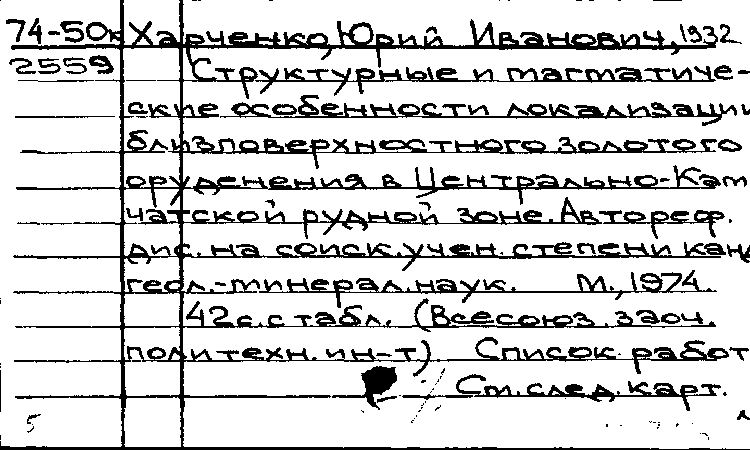 74-50к Харченко, Юрий Иванович, 1932
2559 Структурные и магматиче-
ские особенности локализации
близповерхностного золотого
оруденения в Центрально-Кам
чатской рудной зоне. Автореф.
дис. на соиск. учен. степени канд
геол.-минерал. наук. М., 1974.
42с. с табл. (Всесоюз. заоч.
политехн. ин-т). Список работ
См. след. карт.
5